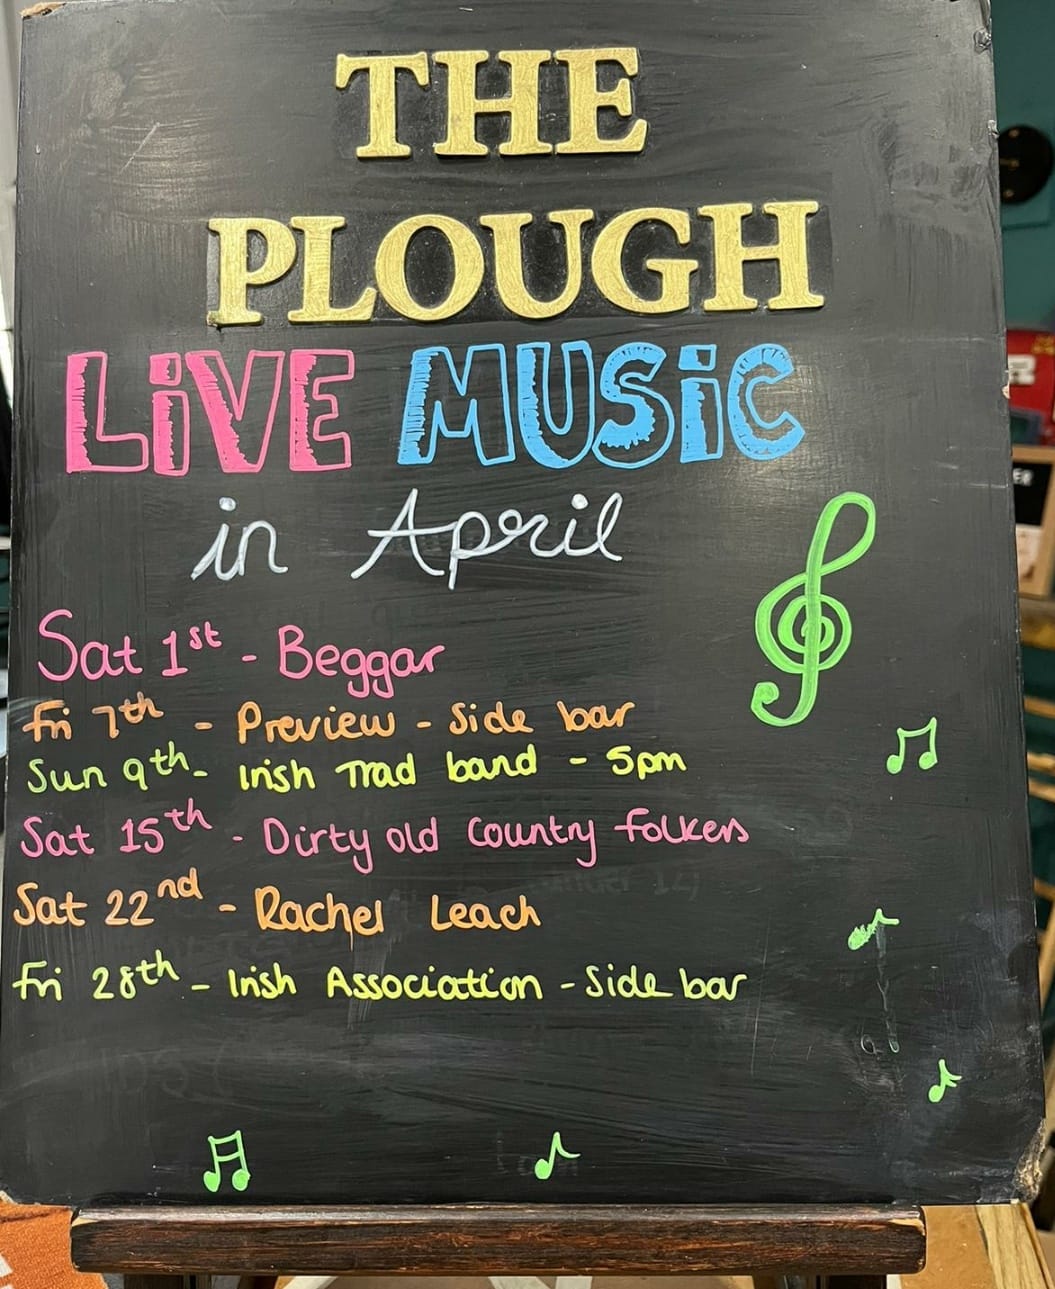 THE
PLOUGH
LiVE MUSiC
in April
Sat 1st - Beggar
Fri 7th - Preview - Side bar
Sun 9th - Irish Trad band - 5pm
Sat 15th - Dirty old Country folkers
Sat 22nd - Rachel Leach
Fri 28th - Irish Association - Side bar